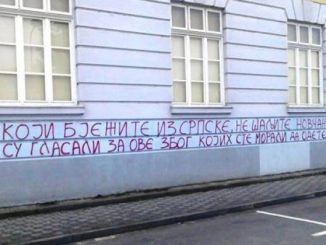 КОЈИ БЈЕЖИТЕ ИЗ СРПСКЕ, НЕ ШАЉИТЕ НОВЧАН
СУ ГЛАСАЛИ ЗА ОВЕ ЗБОГ КОЈИХ СТЕ МОРАЛИ ДА ОДЕТЕ